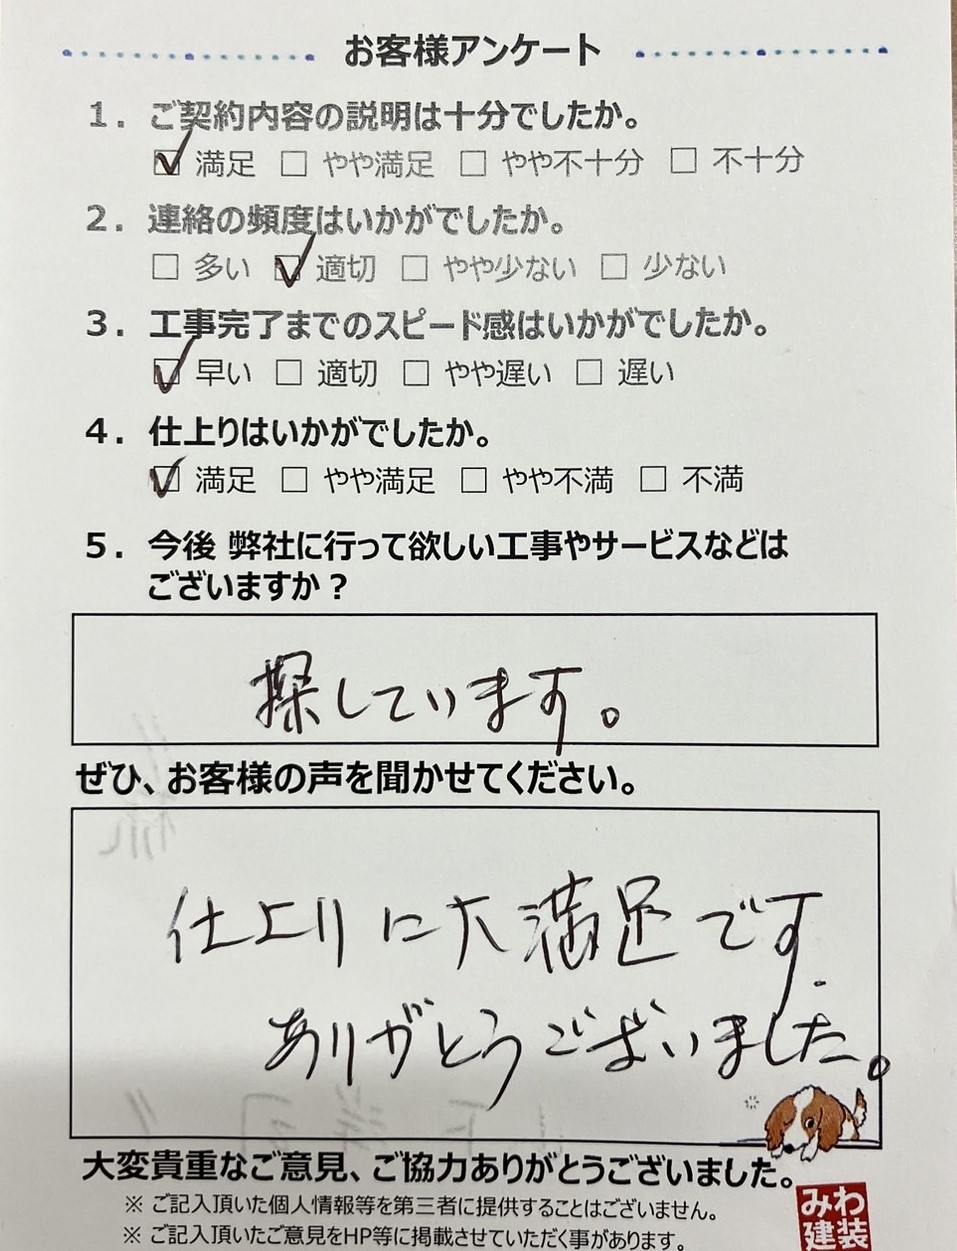 お客様アンケート
1. ご契約内容の説明は十分でしたか。
☑ 満足 □ やや満足 □ やや不十分 □ 不十分
2. 連絡の頻度はいかがでしたか。
□ 多い ☑ 適切 □ やや少ない □ 少ない
3. 工事完了までのスピード感はいかがでしたか。
☑ 早い □ 適切 □ やや遅い □ 遅い
4. 仕上りはいかがでしたか。
☑ 満足 □ やや満足 □ やや不満 □ 不満
5. 今後 弊社に行って欲しい工事やサービスなどは
ございますか？
探しています。
ぜひ、お客様の声を聞かせてください。
仕上りに大満足です.
ありがとうございました。
大変貴重なご意見、ご協力ありがとうございました。
※ ご記入頂いた個人情報等を第三者に提供することはございません。
※ ご記入頂いたご意見をHP等に掲載させていただく事があります。
みわ
建装